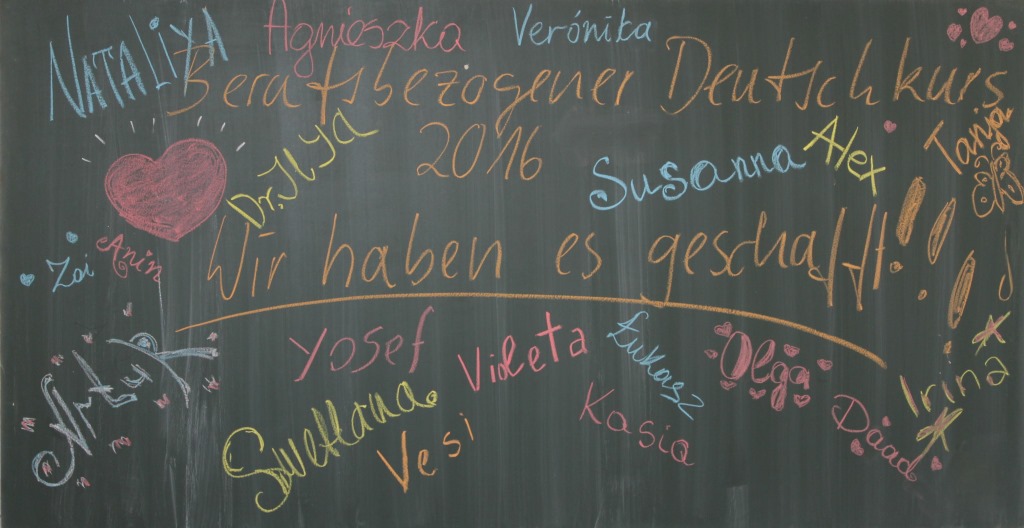 NATALIYA
Agnieszka
Verónika
Berufsbezogener Deutschkurs
2016
Dr. ILYA
Susanna
Alex
Tanja
Wir haben es geschafft!!!
Zoi
Anin
Yosef
Violeta
Łukasz
Olga
Irina
Artur
Swetlana
Vesi
Kasia
Daad